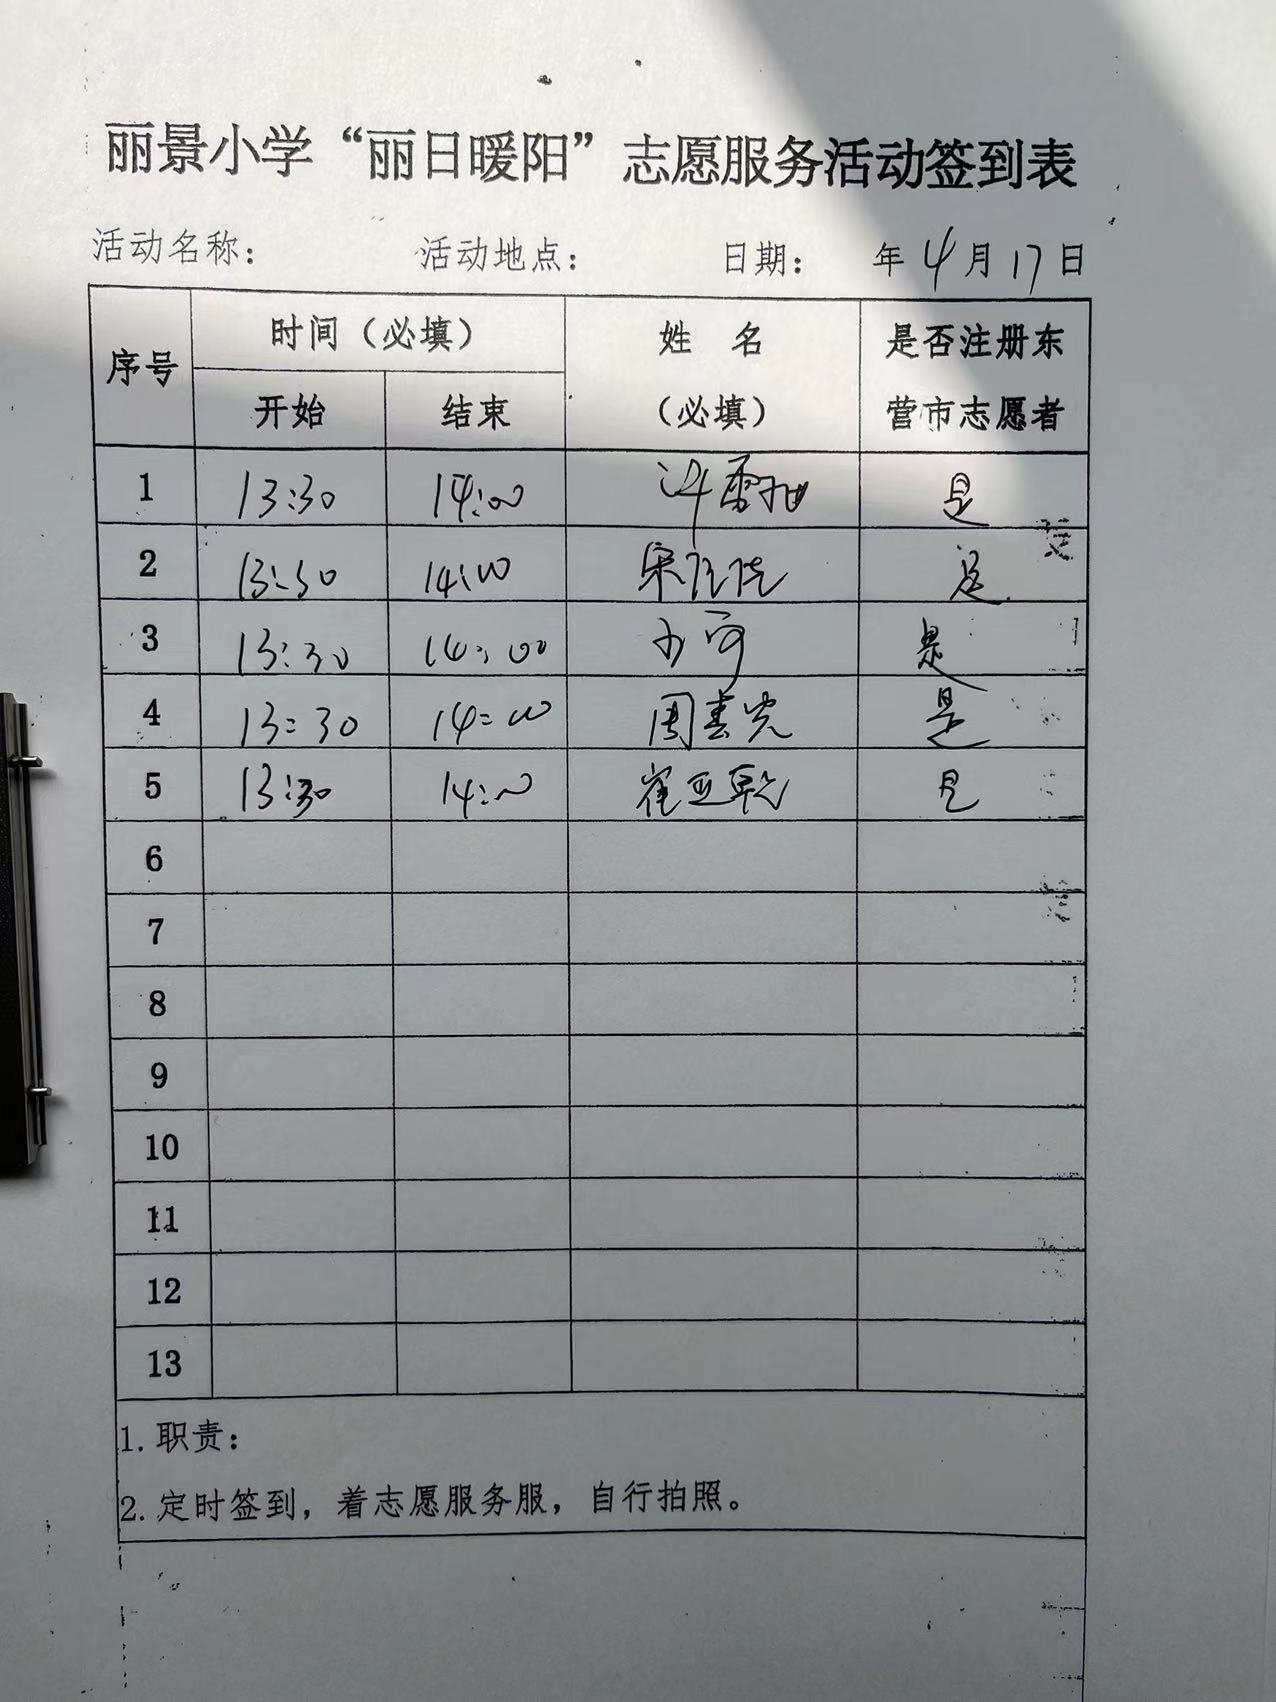 丽景小学“丽日暖阳”志愿服务活动签到表
活动名称： 活动地点： 日期： 年 4 月 17 日
序号 时间（必填） 姓 名 是否注册东
开始 结束 （必填） 营市志愿者
1 13:30 14:00 是
2 13:30 14:00 宋 是
3 13:30 14:00 是
4 13:30 14:00 周 是
5 13:30 14:00 崔亚乾 是
6
7
8
9
10
11
12
13
1.职责：
2.定时签到，着志愿服务服，自行拍照。